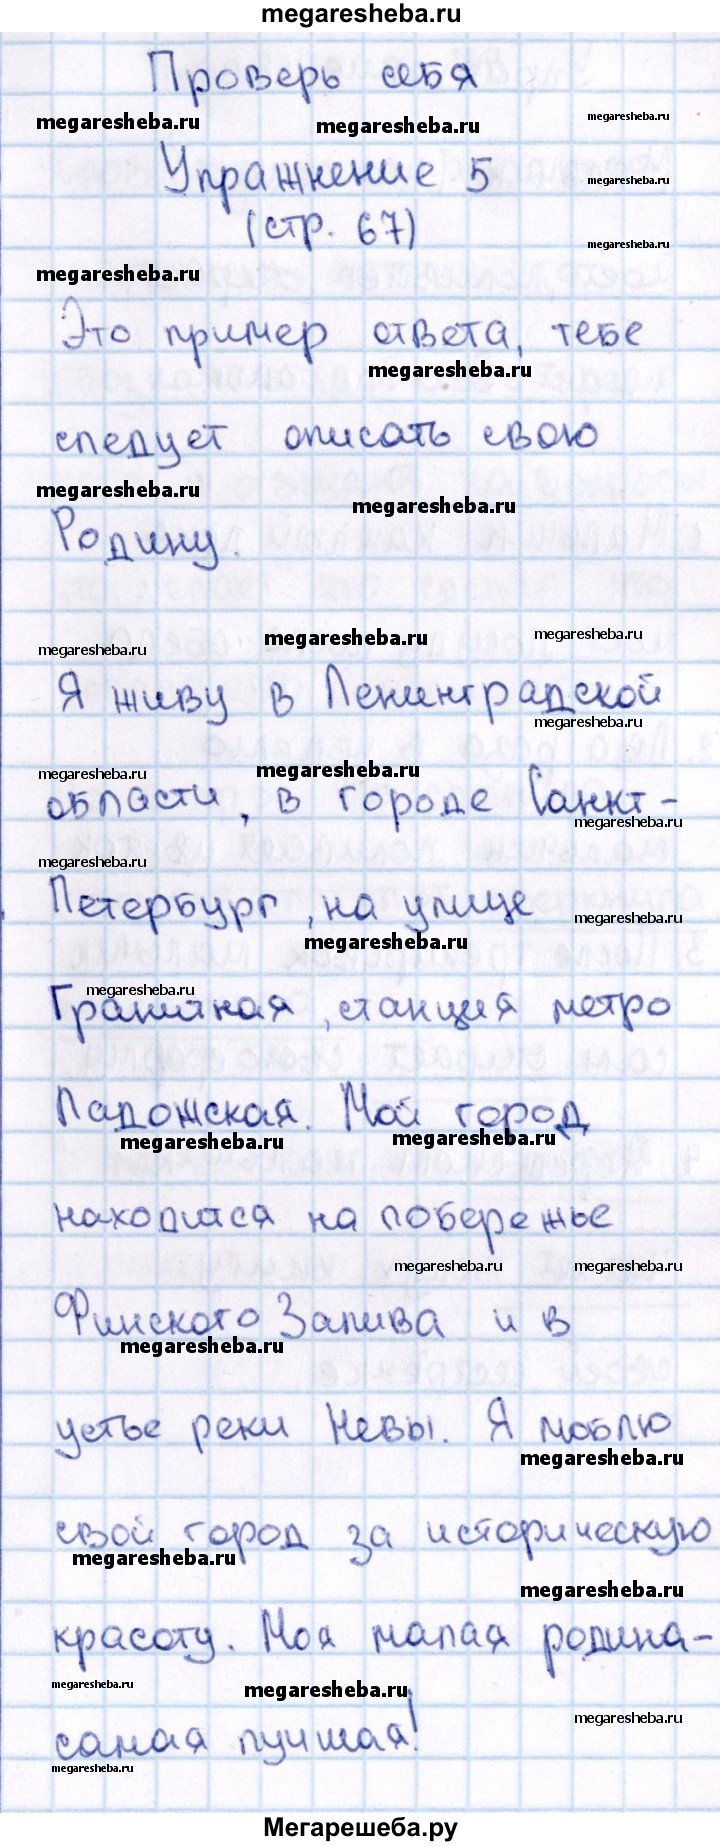 megaresheba.ru
Проверь себя
megaresheba.ru megaresheba.ru megaresheba.ru
Упражнение 5
megaresheba.ru
(стр. 67)
megaresheba.ru
megaresheba.ru
Это пример ответа, тебе
megaresheba.ru
следует описать свою
megaresheba.ru megaresheba.ru
Родину.
megaresheba.ru megaresheba.ru megaresheba.ru
Я живу в Ленинградской
megaresheba.ru
megaresheba.ru megaresheba.ru
области, в городе Санкт-
megaresheba.ru
megaresheba.ru
Петербург, на улице
megaresheba.ru
megaresheba.ru
megaresheba.ru
Гранитная, станция метро
Ладожская. Мой город
megaresheba.ru megaresheba.ru
находится на побережье
megaresheba.ru megaresheba.ru
Финского Залива и в
megaresheba.ru
устье реки Невы. Я люблю
megaresheba.ru
свой город за историческую
megaresheba.ru
megaresheba.ru
красоту. Моя малая родина-
megaresheba.ru megaresheba.ru
megaresheba.ru
самая лучшая!
megaresheba.ru
Мегарешеба.ру